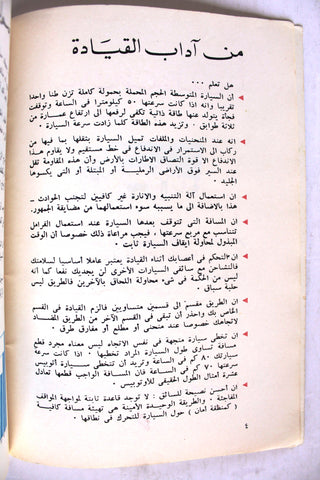 من آداب القيادة
هل تعلم ٠٠٠
أن السيارة المتوسطة الحجم المحملة بحمولة كاملة تزن طنا واحدا
تقريبا وانه اذا كانت سرعتها ٥٠ كيلومترا في الساعة وتوقفت
فجأة يتولد عنها طاقة تكفي لرفعها الى ارتفاع عمارة من
ثلاثة طوابق . وتزيد هذه الطاقة كلما زادت سرعة السيارة .
انه عند المنحنيات والملفات تميل السيارة بثقلها بما فيها من
ركاب الى الاستمرار في الاندفاع في خط مستقيم ولا يقاوم هذا
الاندفاع الا قوة التصاق الاطارات بالأرض وأن هذه المقاومة تقل
عند السير فوق الأراضي الرملية أو المبتلة أو التي يكسوها
الجليد .
ان استعمال آلة التنبيه والانارة غير كافيين لتجنب الحوادث ـ
هذا بالاضافة الى ما يسببه سوء استعمالهما من مضايقة الجمهور.
ان المسافة التي تتوقف بعدها السيارة عند استعمال الفرامل
تتناسب مع مربع سرعتها ، فيجب مراعاة ذلك خصوصا أن الوقت
المبذول لمحاولة ايقاف السيارة ثابت .
التحكم في أعصابك أثناء القيادة يعتبر عاملا أساسيا لسلامتك
فالتشاحن مع سائقي السيارات الأخرى لن يجديك نفعا كما انه
ليس من الحكمة في شيء محاولة اللحاق بالآخرين فالطريق ليس
حلبة سباق .
ان الطريق مقسم الى قسمين متساويين فالزم القيادة في القسم
الخاص بك واحذر أن تبقى في القسم الآخر من الطريق المضاد
لاتجاهك خصوصا عند منحنى أو مطلع أو مفارق طرق .
ان تخطي سيارة متجهة في نفس الاتجاه ليس معناه مجرد قطع
مسافة تساوي طول السيارة المراد تخطيها . اذا كانت سرعة
سيارتك ٨٠ كم في الساعة وتريد أن تتخطى سيارة أتوبيس
سرعته ٧٠ كم في الساعة فان المسافة الواجب قطعها تعادل
عشرة أمثال الطول الحقيقي للأتوبيس .
ان أحسن نصيحة للسائق : لا توجد قاعدة ثابتة لمواجهة المواقف
المفاجئة . والطريقة الوحيدة الأمينة هي تهيئة مسافة كافية
( كمنطقة أمان ) حول السيارة للتحرك في نطاقها .
٤